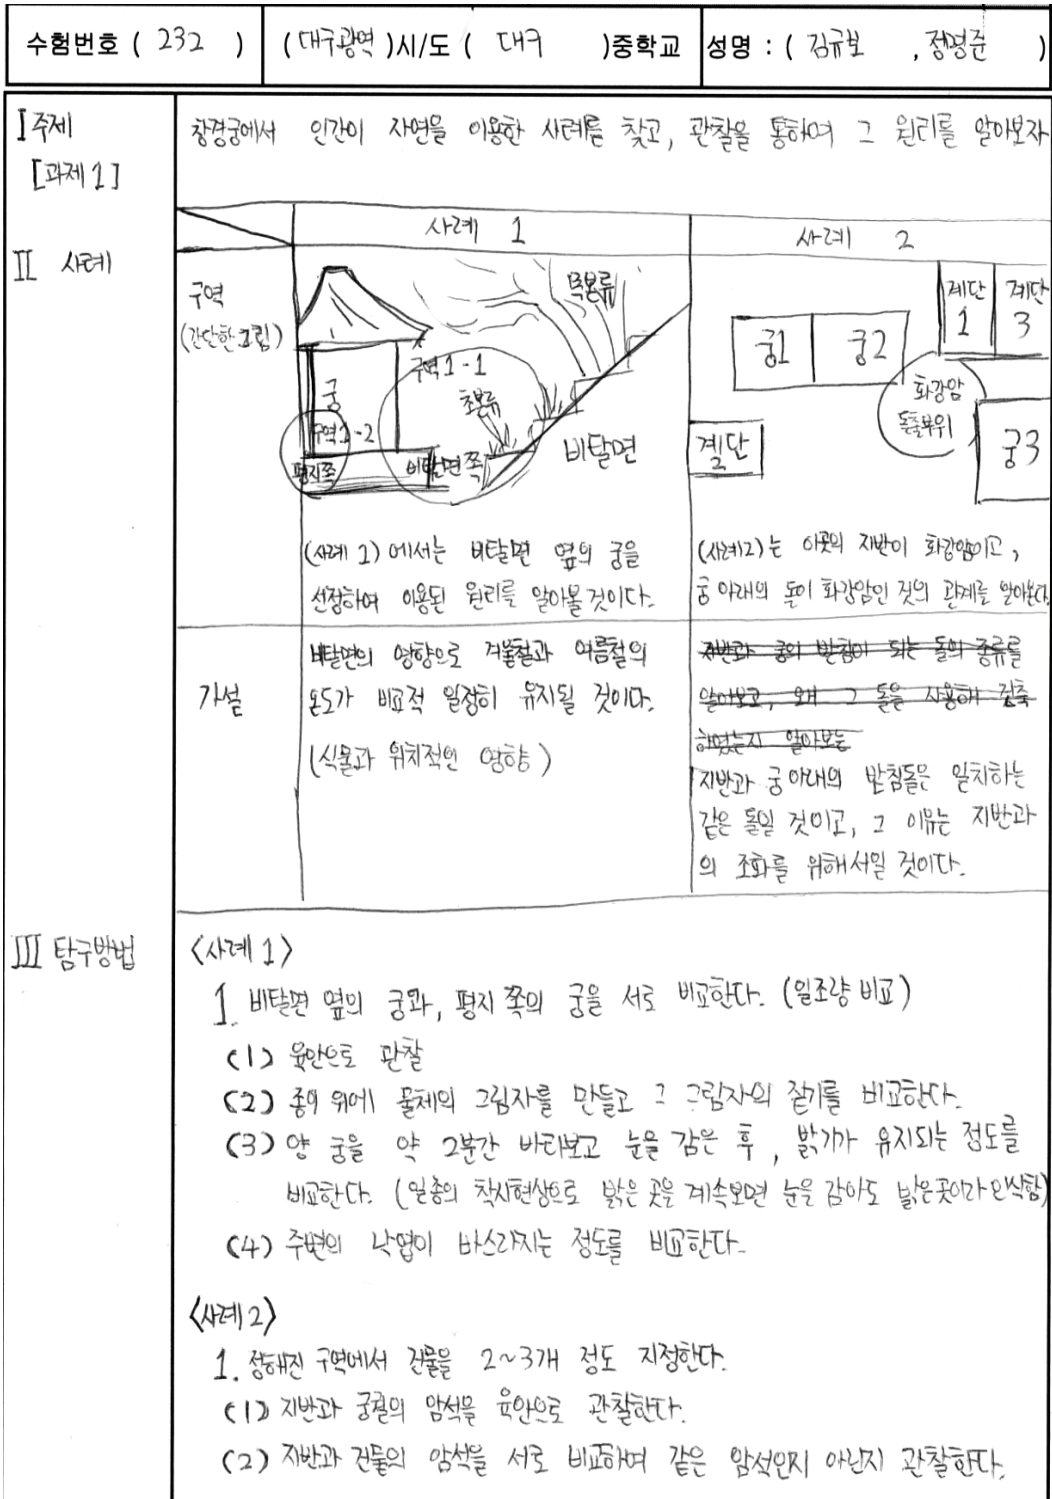 수험번호 ( 232 ) (대구광역)시/도 ( 대구 )중학교 성명 : ( 김규보 , 정명준 )
I 주제
[과제 1]
창경궁에서 인간이 자연을 이용한 사례를 찾고, 관찰을 통하여 그 원리를 알아보자
II 사례
사례 1
사례 2
구역
(간단한 그림)
목본류
구역1-1
초본류
궁
구역1-2
평지쪽
비탈면쪽
비탈면
궁1
궁2
계단
1
계단
3
화강암
돌출부위
계단
2
궁3
(사례 1)에서는 비탈면 옆의 궁을
선정하여 이용된 원리를 알아볼 것이다.
(사례2)는 이곳의 지반이 화강암이고,
궁 아래의 돌이 화강암인 것의 관계를 알아본다.
가설
비탈면의 영향으로 겨울철과 여름철의
온도가 비교적 일정히 유지될 것이다.
(식물과 위치적인 영향)
지반과 궁의 받침이 되는 돌의 종류를
알아보고, 왜 그 돌을 사용해 건축
하였는지 알아보는
지반과 궁 아래의 받침돌은 일치하는
같은 돌일 것이고, 그 이유는 지반과
의 조화를 위해서일 것이다.
III 탐구방법
<사례 1>
1. 비탈면 옆의 궁과, 평지 쪽의 궁을 서로 비교한다. (일조량 비교)
(1) 육안으로 관찰
(2) 종이 위에 물체의 그림자를 만들고 그 그림자의 짙기를 비교한다.
(3) 양 궁을 약 2분간 바라보고 눈을 감은 후, 밝기가 유지되는 정도를
비교한다. (일종의 착시현상으로 밝은 곳을 계속보면 눈을 감아도 밝은곳이라 인식함)
(4) 주변의 낙엽이 바스라지는 정도를 비교한다.
<사례2>
1. 정해진 구역에서 건물을 2~3개 정도 지정한다.
(1) 지반과 궁궐의 암석을 육안으로 관찰한다.
(2) 지반과 건물의 암석을 서로 비교하여 같은 암석인지 아닌지 관찰한다.